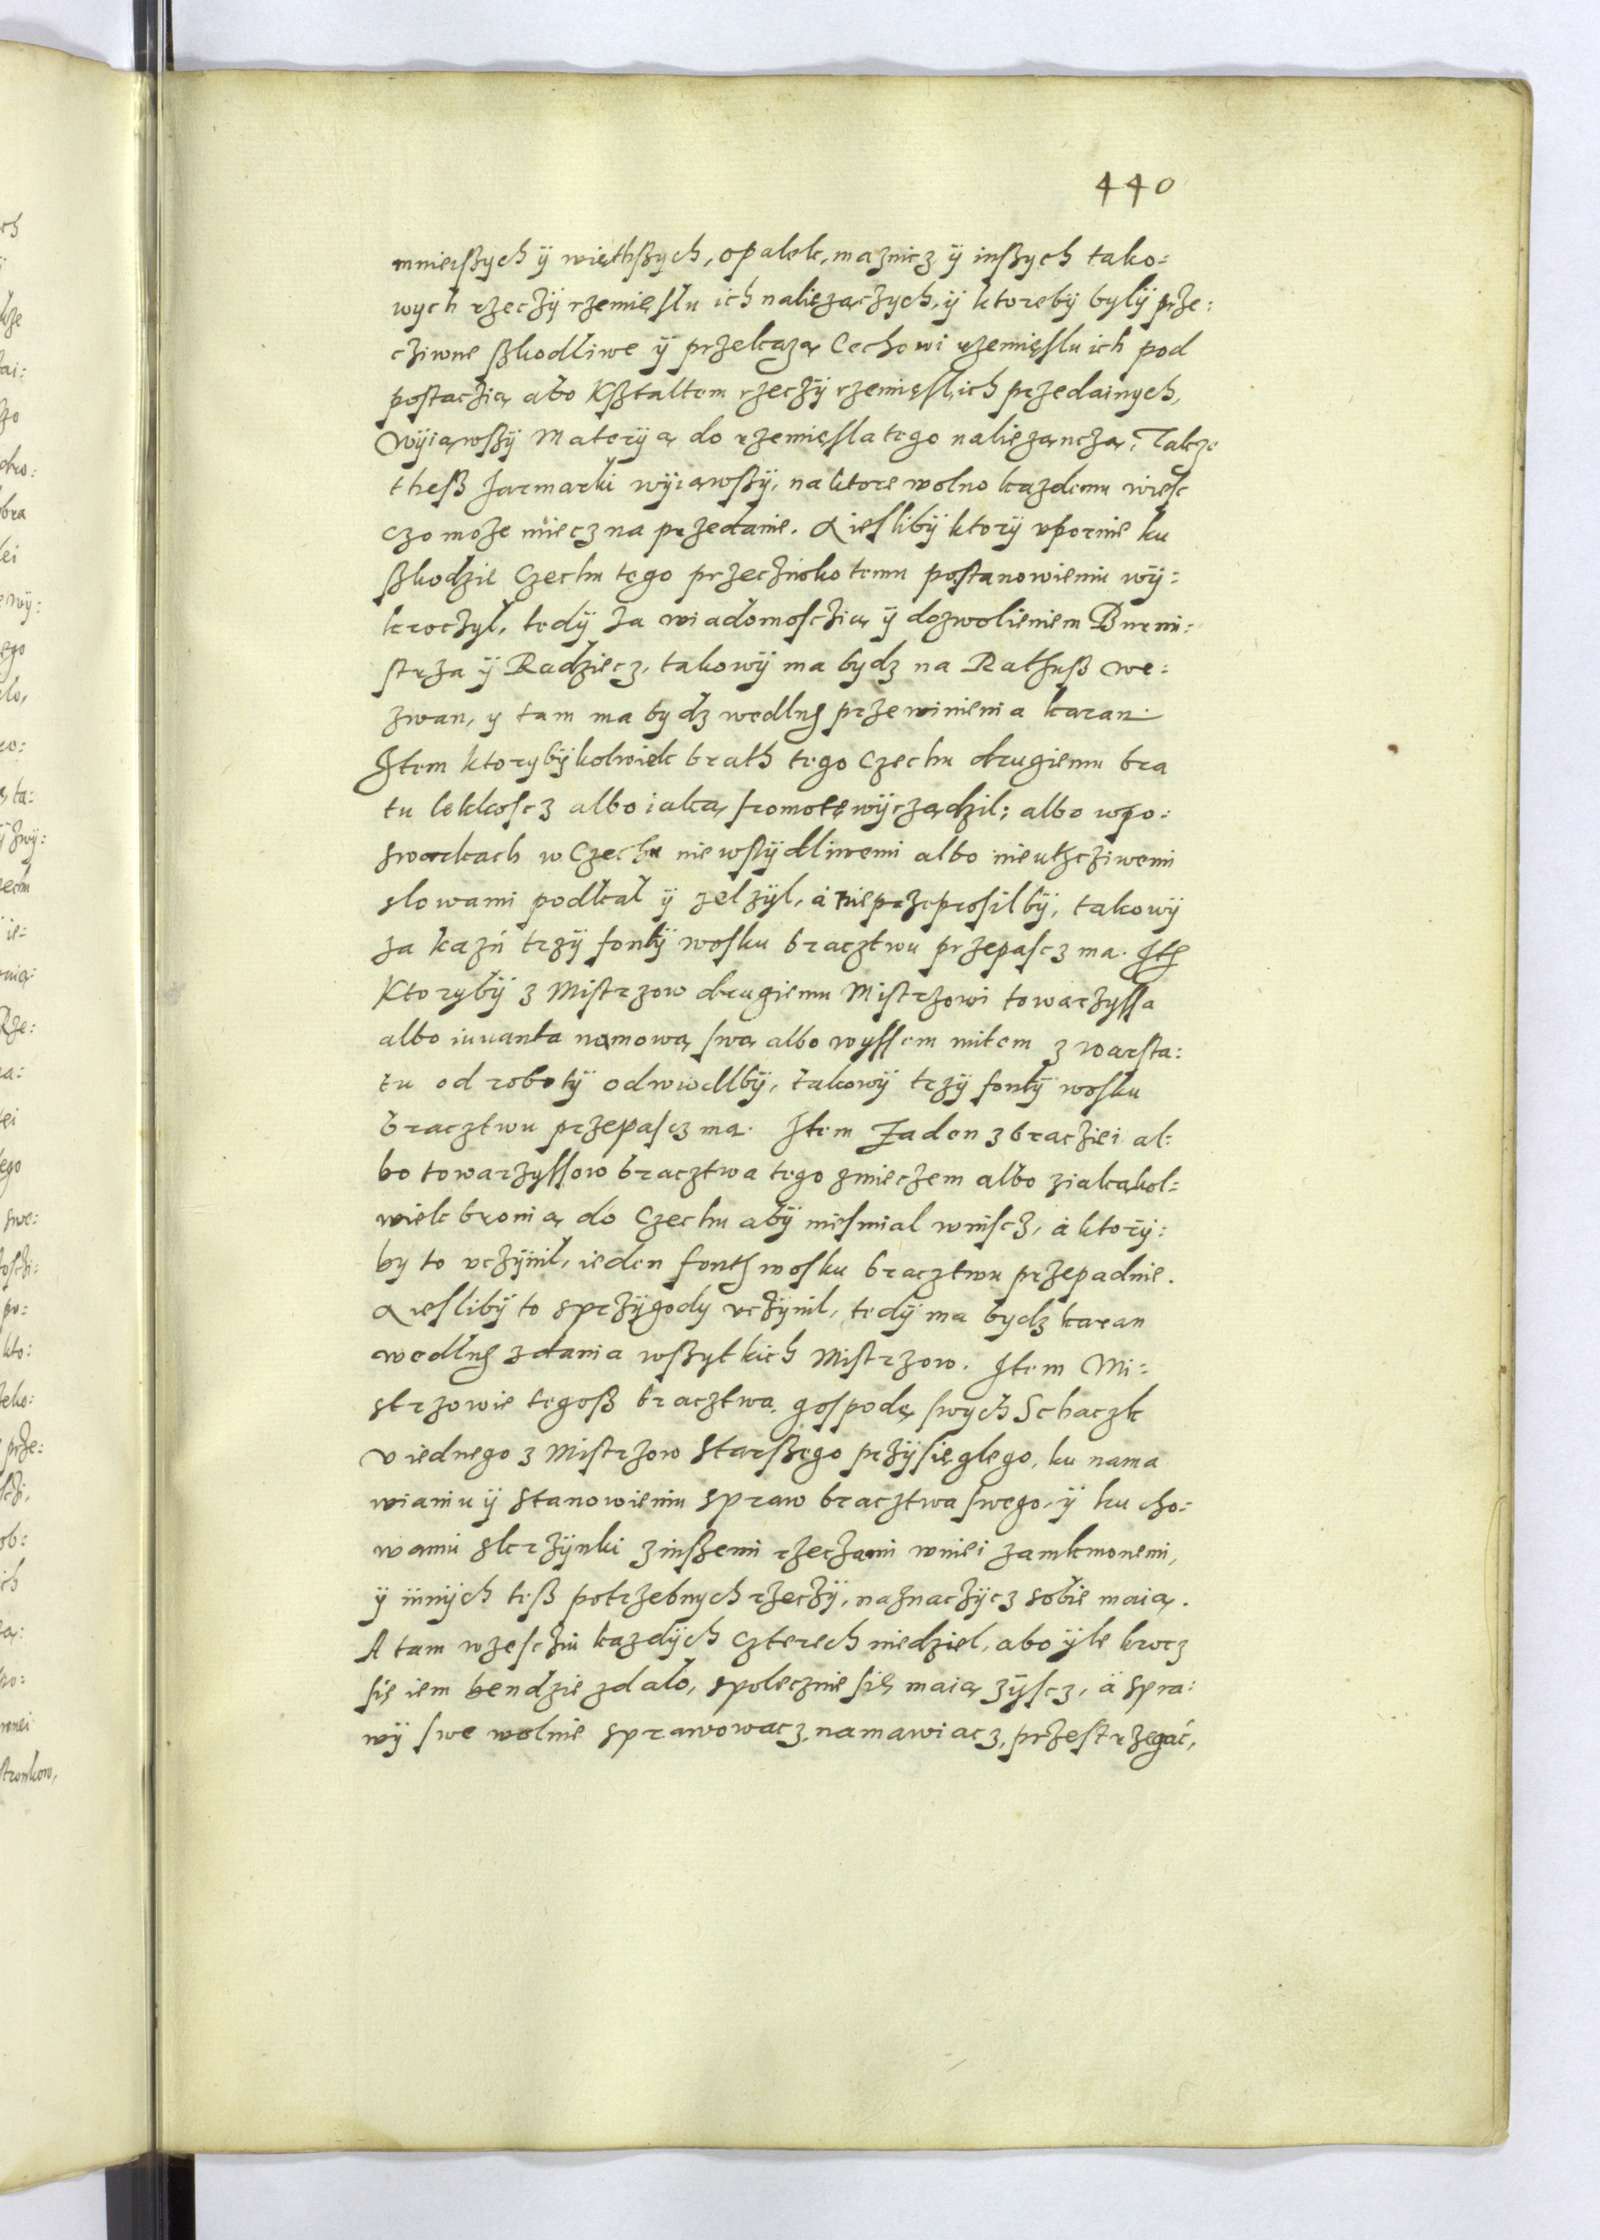 440
mnieiszych ÿ więthszych, opalek, maznicz ÿ inszych tako:
wych rzeczÿ rzemięslu ich naliezączych, ÿ ktorebÿ bylÿ prze:
cziwne szkodliwe ÿ przekazą Cechowi rzemięslu ich pod
postaczią abo Ksztaltem rzeczÿ rzemięsl, ich przedainych,
Wÿiąwszÿ Materÿą do rzemięsla tego naliezącza, Takze
thesz Jarmarki wÿiąwszÿ, na ktore wolno kazdemu wiesc
czo może miecz na przedanie. A ieslibÿ ktorÿ vpornie ku
szkodzie Czechu tego przeciwko temu postanowieniu wÿ:
kroczÿl, tedÿ za wiadomosczią ÿ dozwolieniem Burmi:
strza ÿ Radziecz, takowÿ ma bydz na Rathusz we:
zwan, y tam ma bydz wedlug przewinienia karan.
Item ktorybÿkolwiek brath tego Czechu drugiemu bra
tu lekkoscz albo iaką sromotę wÿrządzil, albo wpo:
swarkach w Czechu niewstÿdliwemi albo nieuthcziwemi
slowami podkal ÿ zelzÿl, á nieprzeprosilbÿ, takowÿ
za kazń trzÿ fontÿ wosku bracztwu przepascz ma. Ith
Ktorybÿ z Mistrzow drugiemu Mistrzowi towarzyssa
albo iuuanta namową swą albo wyssem mitem z warsta:
tu od robotÿ odwiodlbÿ, takowÿ trzÿ fontÿ wosku
bracztwu przepascz ma. Item Żaden z bracziei al:
bo towarzyssow bracztwa tego zmieczem albo ziakąkol:
wiek bronią do Czechu abÿ niesmial wniscz, á ktorÿ:
by to vczÿnil, ieden fonth wosku bracztwu przepadnie.
A ieslibÿ to sprzÿgody vczÿnil, tedÿ ma bydz karan
wedlug zdania wszytkich Mistrzow. Item Mi:
strzowie tegosz bractzwa, gospodę swych Schaczk
v iednego z Mistrzow starszego przÿsięglego, ku nama
wianiu ÿ stanowieniu spraw bracztwa swego, ÿ ku cho:
waniu skrzÿnki zinszemi rzeczami wniei zamkmonemi,
ÿ innÿch tesz potrzebnych rzeczÿ, naznaczÿcz sobie maią.
A tam wzesczin kazdÿch czterech niedziel, abo ÿle krocz
się iem bendzie zdalo, spolecznie się maią zÿscz, á spra:
wÿ swe wolnie sprawowacz, namawiacz, przestrzegác,